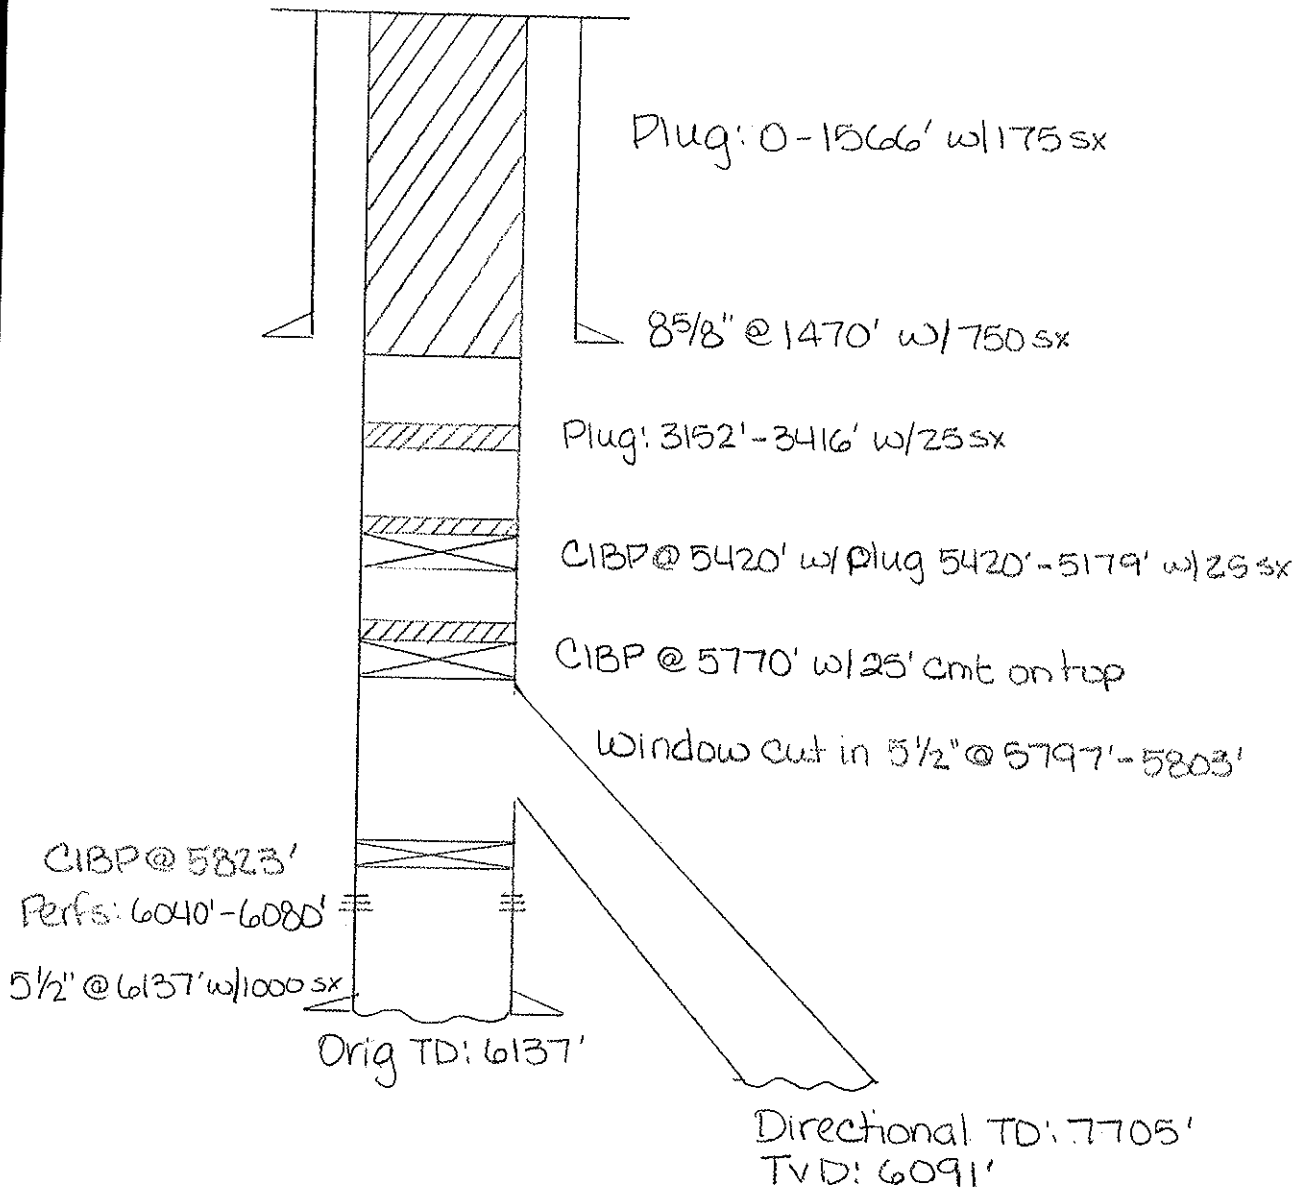 Plug: 0-1566' w/175 sx
8 5/8" @ 1470' w/ 750 sx
Plug: 3152'-3416' w/25 sx
CIBP @ 5420' w/ Plug 5420'-5179' w/25 sx
CIBP @ 5770' w/25' cmt on top
Window cut in 5 1/2" @ 5797'-5803'
CIBP @ 5823'
Perfs: 6040'-6080'
5 1/2" @ 6137' w/1000 sx
Orig TD: 6137'
Directional TD: 7705'
TVD: 6091'